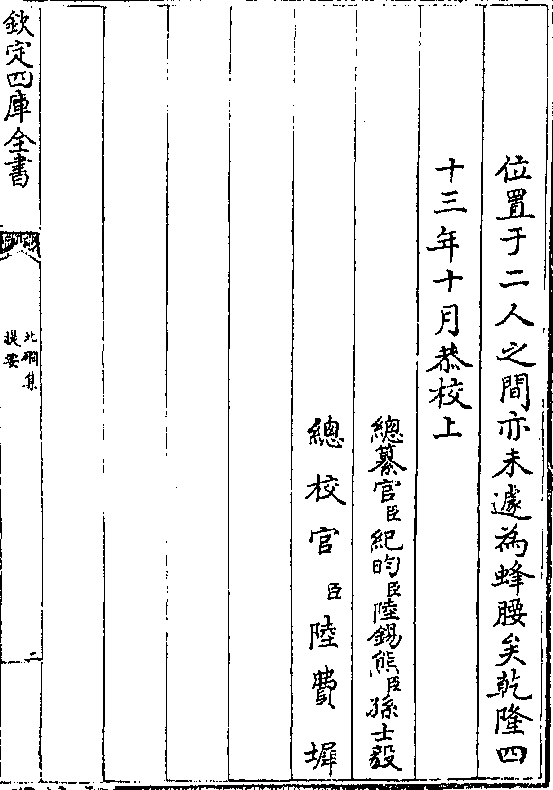 位置于二人之間亦未遽為蜂腰矣乾隆四
十三年十月恭校上
總纂官臣紀昀臣陸錫熊臣孫士毅
總校官臣陸費墀
欽定四庫全書
北磵集
提要
二